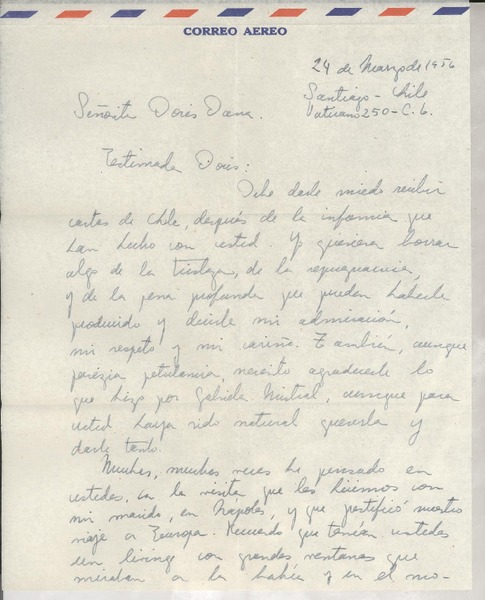 CORREO AEREO
24 de Marzo de 1956
Santiago - Chile
250 - C. 6.
Señorita Doris Dana.
Estimada Doris:
Debe darle miedo recibir
cartas de Chile, después de la infamia que
han hecho con usted. Yo quisiera borrar
algo de la tristeza, de la repugnancia,
y de la pena profunda que pueden haberle
producido y decirle mi admiración,
mi respeto y mi cariño. También, aunque
parezca petulancia, necesito agradecerle lo
que hizo por Gabriela Mistral, aunque para
usted haya sido natural quererla y
darle tanto.
Muchas, muchas veces he pensado en
ustedes, en la visita que les hicimos con
mi marido, en Nápoles, y que justificó nuestro
viaje a Europa. Recuerdo que tenían ustedes
un living con grandes ventanas que
miraban a la bahía y en el mo-